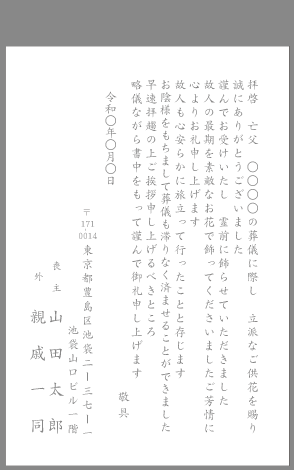 拝啓　亡父　〇〇〇〇の葬儀に際し　立派なご供花を賜り
誠にありがとうございました
謹んでお受けいたし　霊前に飾らせていただきました
故人の最期を素敵なお花で飾ってくださいましたご芳情に
心よりお礼申し上げます
故人も心安らかに旅立って行ったことと存じます
お陰様をもちまして葬儀も滞りなく済ませることができました
早速拝趨の上ご挨拶申し上げるべきところ
略儀ながら書中をもって謹んで御礼申し上げます
敬具
令和〇年〇月〇日
〒171-0014
東京都豊島区池袋二ー三七ー一
池袋山口ビル一階
喪主　山田太郎
外　親戚一同